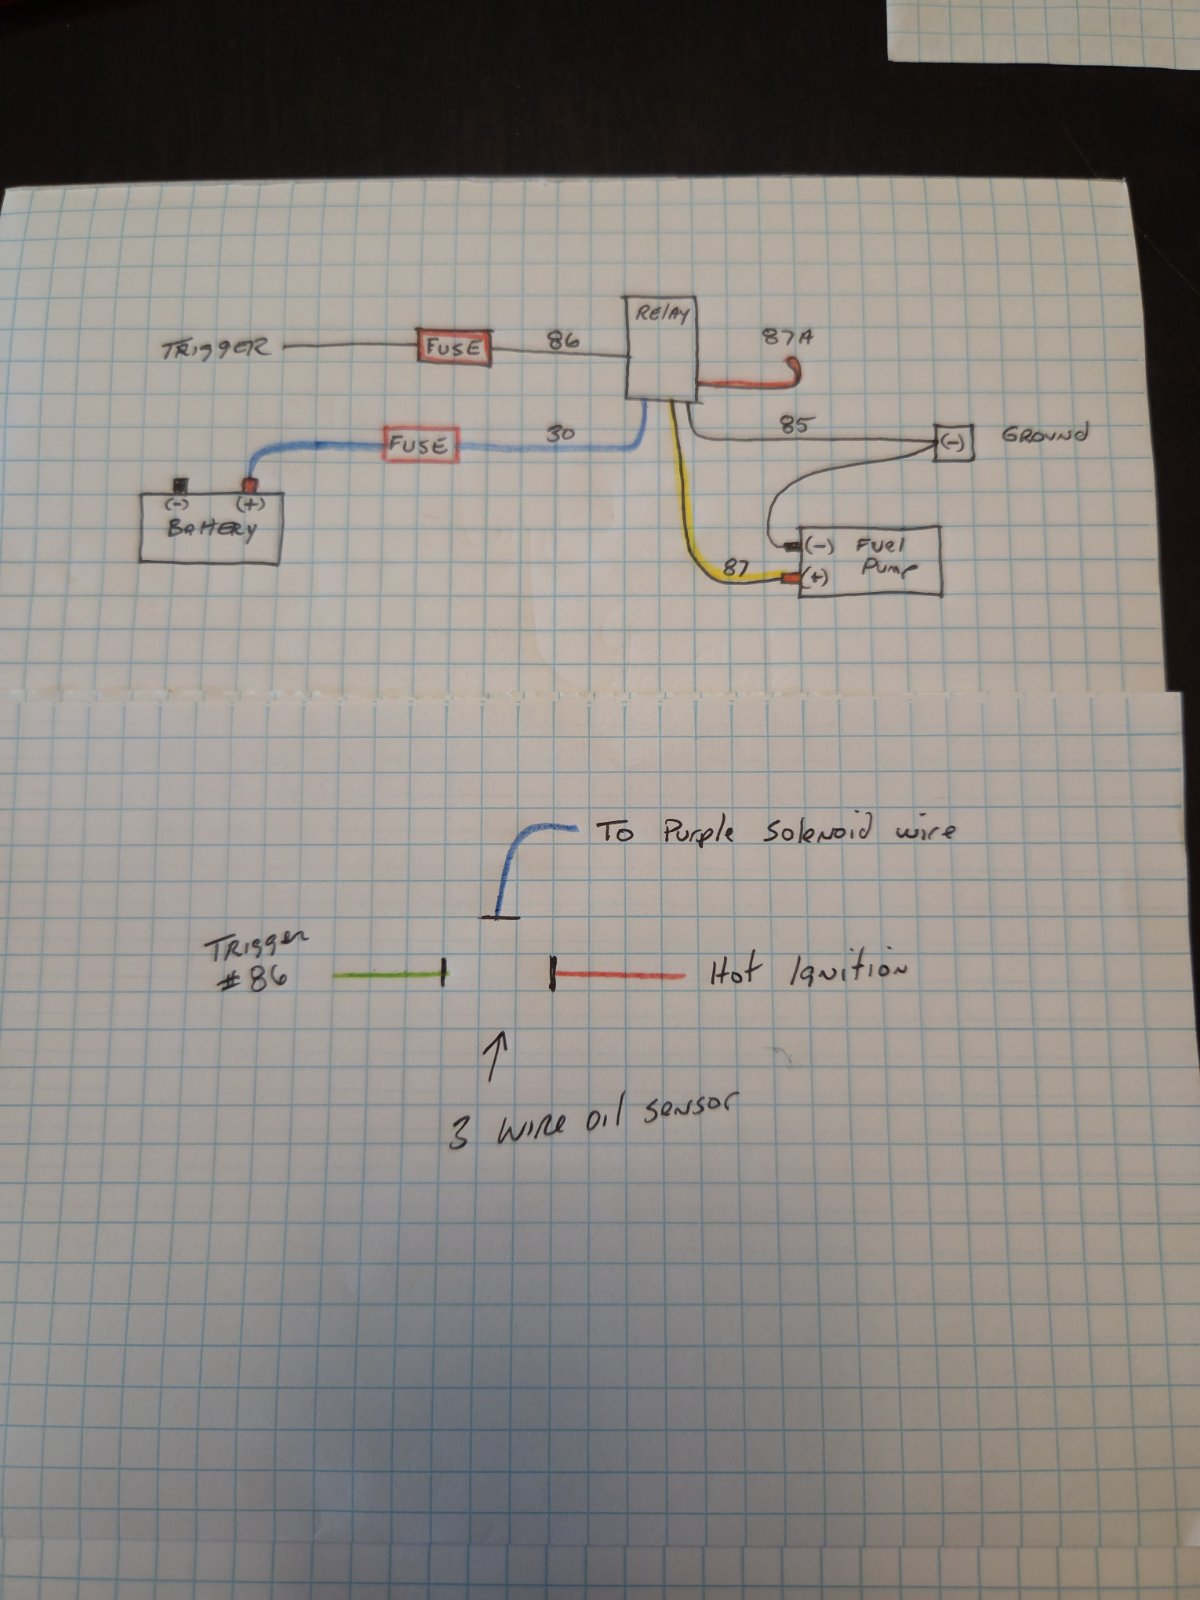 RELAY
87A
TRIGGER
FUSE
86
85
(-)
GROUND
FUSE
30
(-)
(+)
Battery
(-) Fuel
(+) Pump
87
To Purple Solenoid wire
Trigger
#86
Hot Ignition
3 wire oil sensor